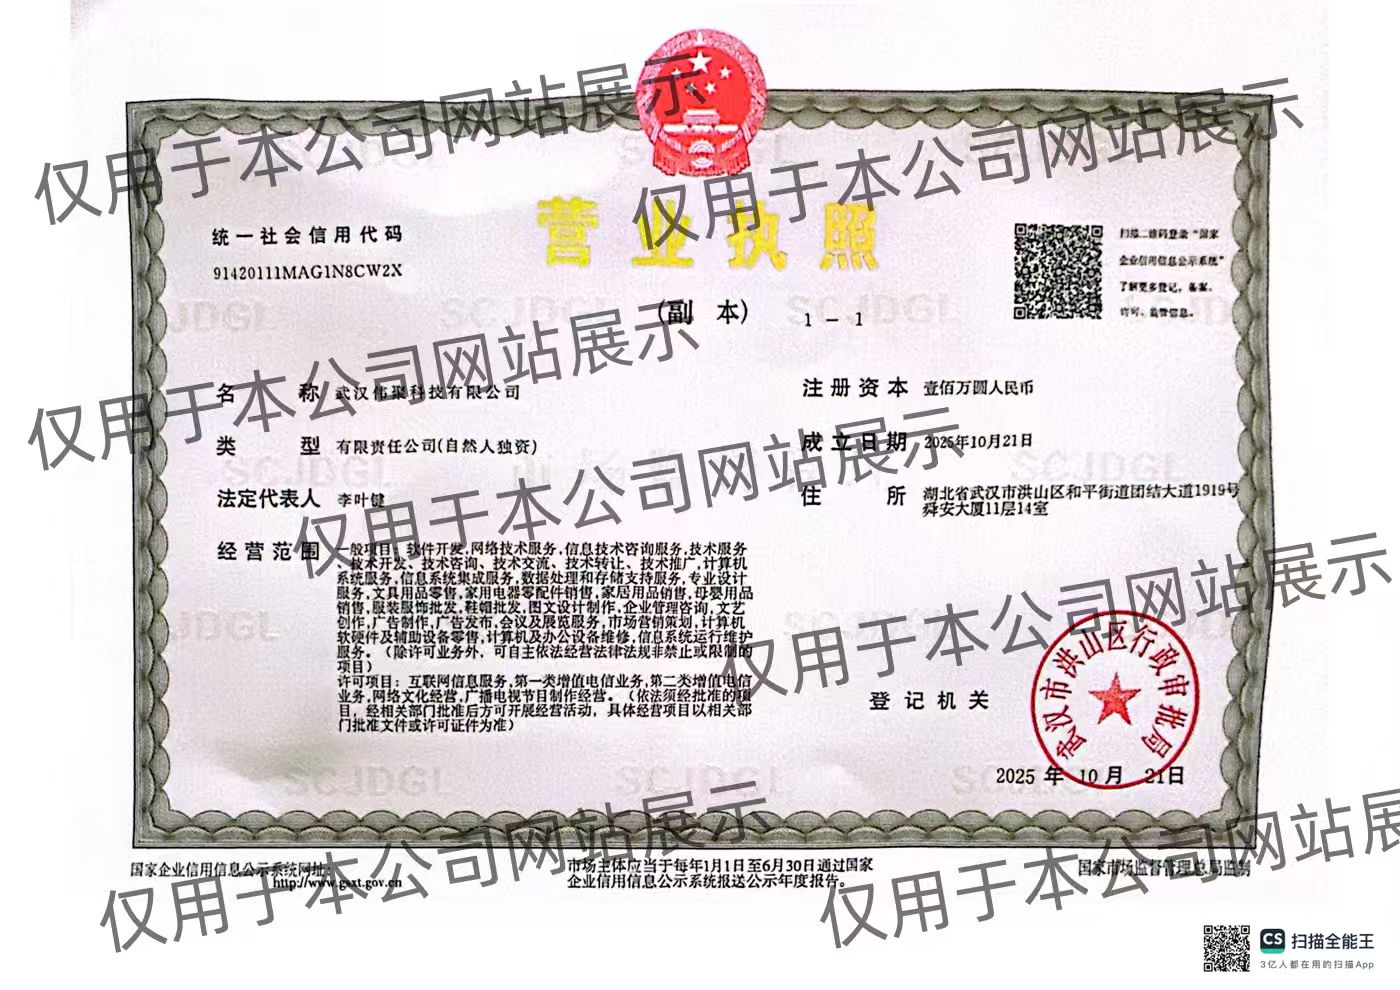 营业执照
(副 本)
1 - 1
统一社会信用代码
91420111MAG1N8CW2X
扫描二维码登录“国家
企业信用信息公示系统”
了解更多登记、备案、
许可、监管信息。
名 称 武汉伟聚科技有限公司
类 型 有限责任公司(自然人独资)
法定代表人 李叶键
经营范围 一般项目：软件开发,网络技术服务,信息技术咨询服务,技术服务
、技术开发、技术咨询、技术交流、技术转让、技术推广,计算机
系统服务,信息系统集成服务,数据处理和存储支持服务,专业设计
服务,文具用品零售,家用电器零配件销售,家居用品销售,母婴用品
销售,服装服饰批发,鞋帽批发,图文设计制作,企业管理咨询,文艺
创作,广告制作,广告发布,会议及展览服务,市场营销策划,计算机
软硬件及辅助设备零售,计算机及办公设备维修,信息系统运行维护
服务。（除许可业务外，可自主依法经营法律法规非禁止或限制的
项目）
许可项目：互联网信息服务,第一类增值电信业务,第二类增值电信
业务,网络文化经营,广播电视节目制作经营。（依法须经批准的项
目，经相关部门批准后方可开展经营活动，具体经营项目以相关部
门批准文件或许可证件为准）
注册资本 壹佰万圆人民币
成立日期 2025年10月21日
住 所 湖北省武汉市洪山区和平街道团结大道1919号
舜安大厦11层14室
登记机关
武汉市洪山区行政审批局
2025 年 10 月 21日
国家企业信用信息公示系统网址：
http://www.gsxt.gov.cn
市场主体应当于每年1月1日至6月30日通过国家
企业信用信息公示系统报送公示年度报告。
国家市场监督管理总局监制
仅用于本公司网站展示
仅用于本公司网站展示
仅用于本公司网站展示
仅用于本公司网站展示
仅用于本公司网站展示
仅用于本公司网站展示
仅用于本公司网站展示
SCJDGL
SCJDGL
SCJDGL
SCJDGL
SCJDGL
SCJDGL
CS 扫描全能王
3亿人都在用的扫描App